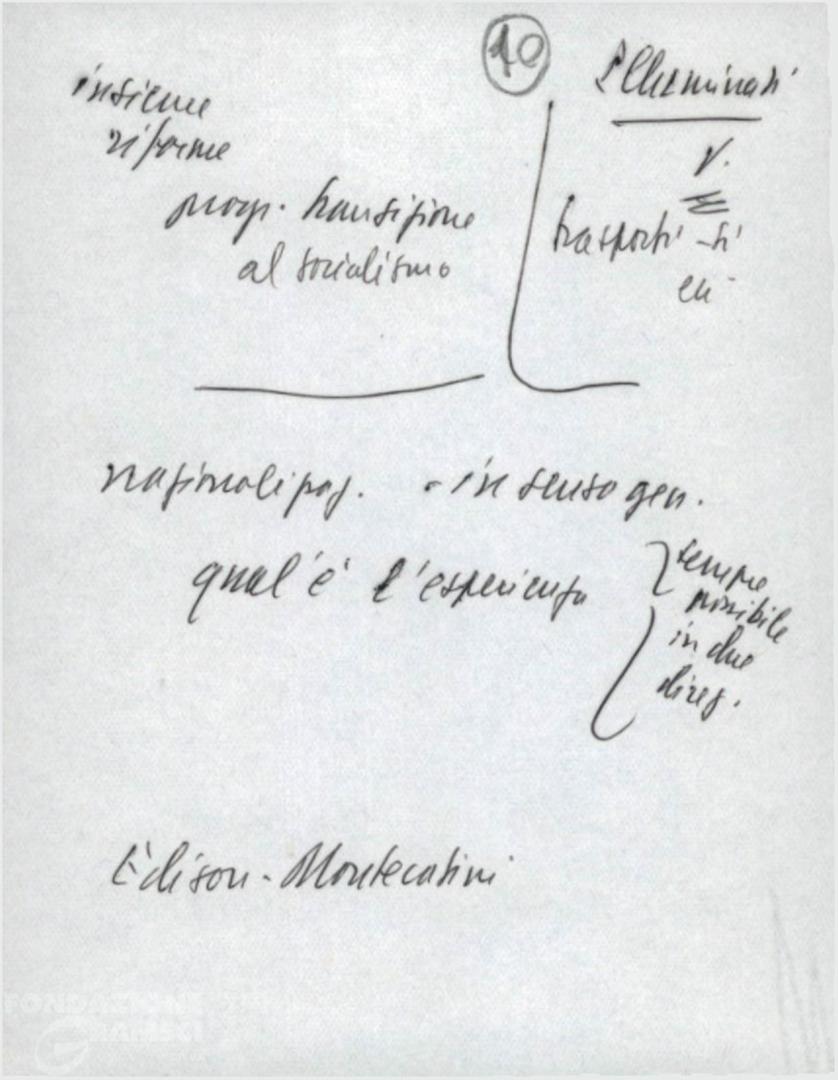 10
insieme
riforme
progr. transizione
al socialismo
Illuminati
V.
trasporti - si
nazionalizzaz. - in senso gen.
qual'è l'esperienza
sempre
possibile
in due
direz.
Edison - Montecatini
FONDAZIONE
GRAMSCI